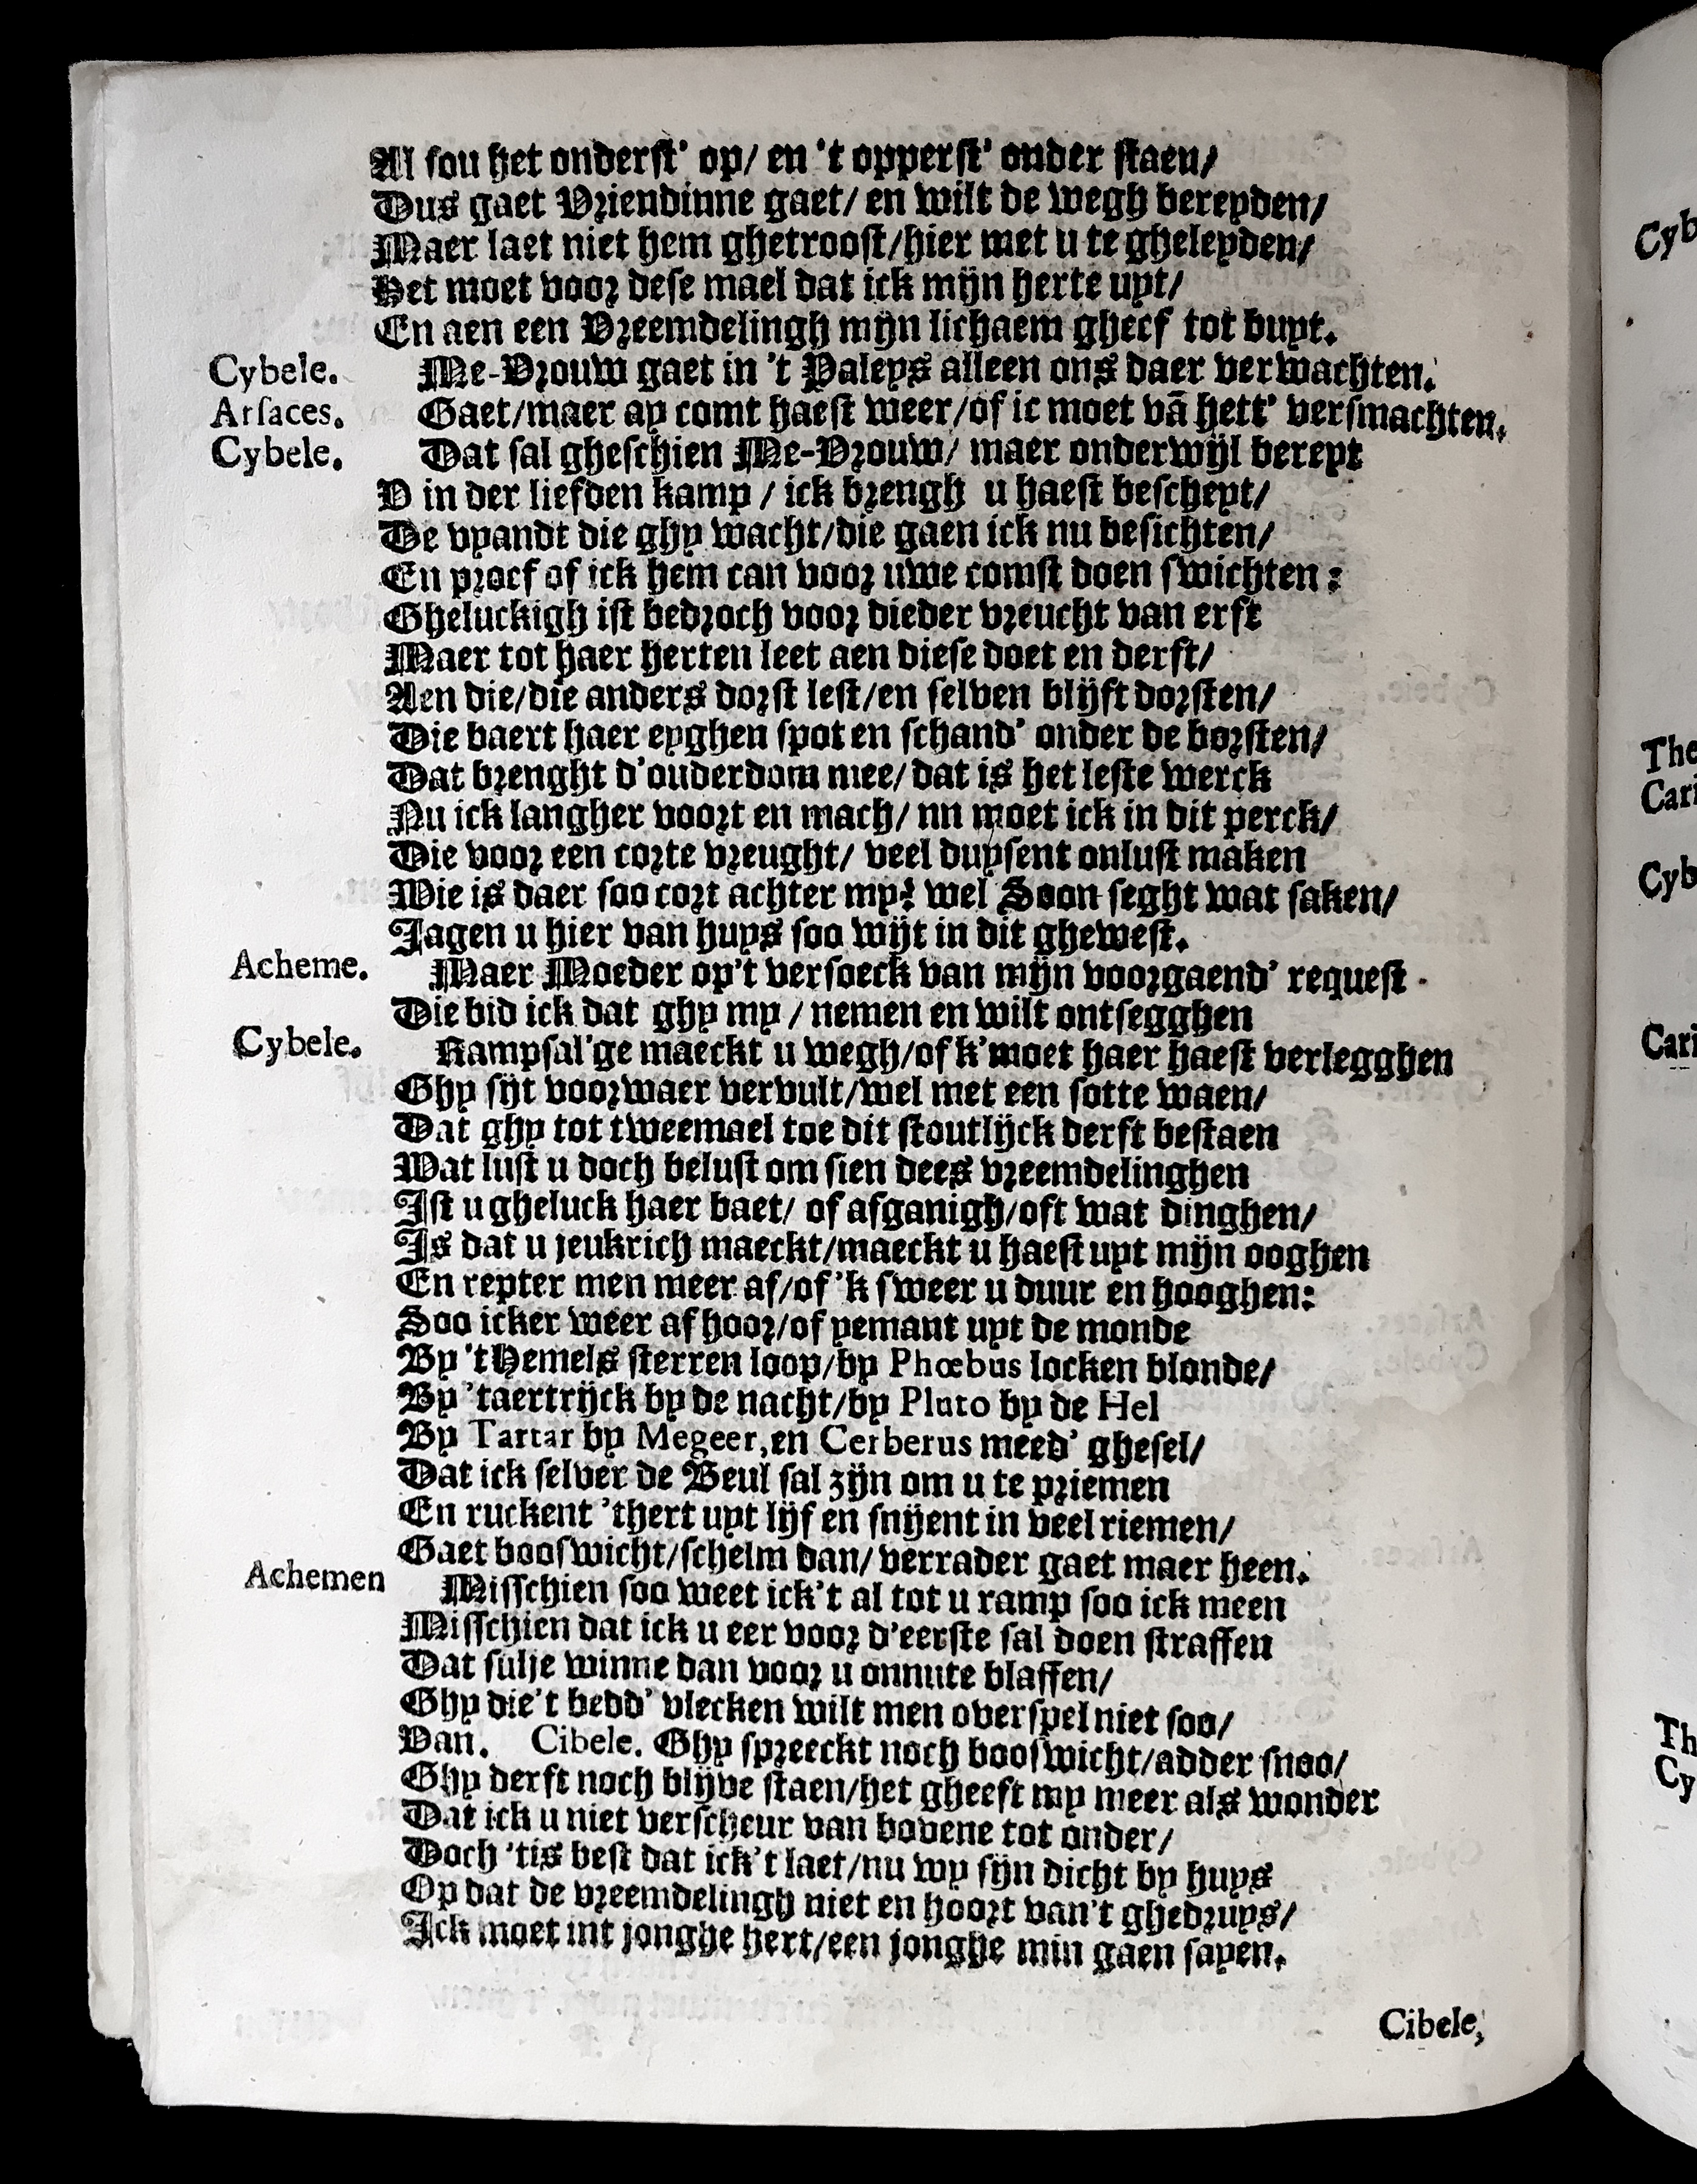 Al sou het onderst' op/ en 't opperst' onder staen/
Dus gaet Vriendinne gaet/ en wilt de wegh bereyden/
Maer laet niet hem ghetroost/hier met u te gheleyden/
Het moet voor dese mael dat ick mijn herte uyt/
En aen een Vreemdelingh mijn lichaem gheef tot buyt.
Cybele. Me-Vrouw gaet in 't Paleys alleen ons daer verwachten.
Arsaces. Gaet/maer ay comt haest weer/of ic moet vã hett' versmachten.
Cybele. Dat sal gheschien Me-Vrouw/ maer onderwijl bereyt
V in der liefden kamp / ick brengh u haest bescheyt/
De vyandt die ghy wacht/die gaen ick nu besichten/
En proef of ick hem can voor uwe comst doen swichten:
Gheluckigh ist bedroch voor dieder vreucht van erft
Maer tot haer herten leet aen diese doet en derft/
Aen die/die anders dorst lest/en selven blijft dorsten/
Die baert haer eyghen spot en schand' onder de borsten/
Dat brenght d'ouderdom mee/ dat is het leste werck
Nu ick langher voort en mach/ nn moet ick in dit perck/
Die voor een corte vreught/ veel duysent onlust maken
Wie is daer soo cort achter my? wel Soon seght wat saken/
Jagen u hier van huys soo wijt in dit ghewest.
Acheme. Maer Moeder op't versoeck van mijn voorgaend' request
Die bid ick dat ghy my / nemen en wilt ontsegghen
Cybele. Kampsal'ge maeckt u wegh/of k'moet haer haest verlegghen
Ghy sijt voorwaer vervult/wel met een sotte waen/
Dat ghy tot tweemael toe dit stoutlijck derft bestaen
Wat lust u doch belust om sien dees vreemdelinghen
Ist u gheluck haer baet/ of afganigh/oft wat dinghen/
Is dat u jeukrich maeckt/maeckt u haest uyt mijn ooghen
En repter men meer af/of 'k sweer u duur en hooghen:
Soo icker weer af hoor/of yemant uyt de monde
By 't Hemels sterren loop/by Phœbus locken blonde/
By 'taertrijck by de nacht/by Pluto by de Hel
By Tartar by Megeer,en Cerberus meed' ghesel/
Dat ick selver de Beul sal zijn om u te priemen
En ruckent 'thert uyt lijf en snijent in veel riemen/
Gaet booswicht/schelm dan/ verrader gaet maer heen.
Achemen Misschien soo weet ick't al tot u ramp soo ick meen
Misschien dat ick u eer voor d'eerste sal doen straffen
Dat sulje winne dan voor u onnute blaffen/
Ghy die't bedd' vlecken wilt men overspel niet soo/
Van. Cibele. Ghy spreeckt noch booswicht/adder snoo/
Ghy derft noch blijve staen/het gheeft my meer als wonder
Dat ick u niet verscheur van bovene tot onder/
Doch 'tis best dat ick't laet/nu wy sijn dicht by huys
Op dat de vreemdelingh niet en hoort van't ghedruys/
Ick moet int jonghe hert/een jonghe min gaen sayen.
Cibele,
Cyb
The
Cari
Cyb
Cari
Th
Cy